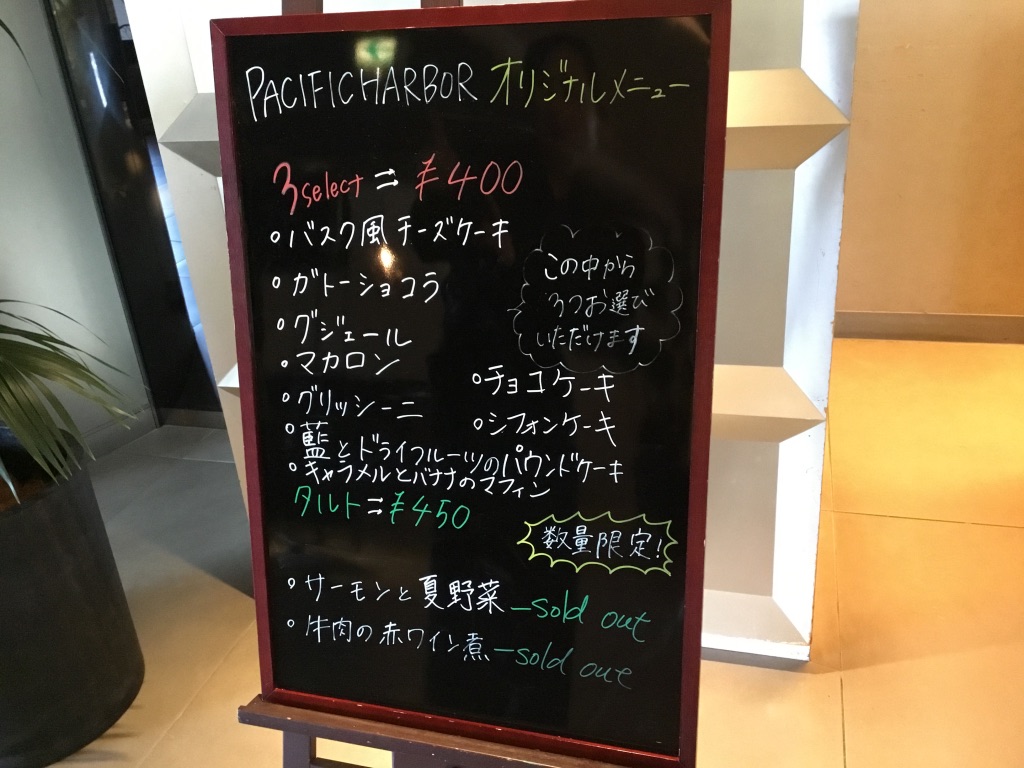 PACIFICHARBOR オリジナルメニュー
3select = ¥400
・バスク風チーズケーキ
・ガトーショコラ
この中から
3つお選び
いただけます
・グジェール
・マカロン
・チョコケーキ
・グリッシーニ
・シフォンケーキ
・藍とドライフルーツのパウンドケーキ
・キャラメルとバナナのマフィン
タルト = ¥450
数量限定!
・サーモンと夏野菜 - sold out
・牛肉の赤ワイン煮 - sold out